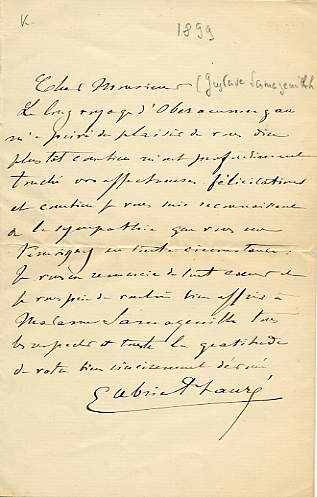 K
1899
Cher Monsieur (Gustave Samazeuilh
Le long voyage d'Oberammergau
m'a privé du plaisir de vous dire
plus tôt combien m'ont profondément
touché vos affectueuses félicitations
et combien je vous suis reconnaissant
de la sympathie que vous me
témoignez en toute circonstance.
Je vous en remercie de tout coeur et
je vous prie de vouloir bien offrir à
Madame Samazeuilh tous
les respects et toute la gratitude
de votre bien sincèrement dévoué
Gabriel Fauré